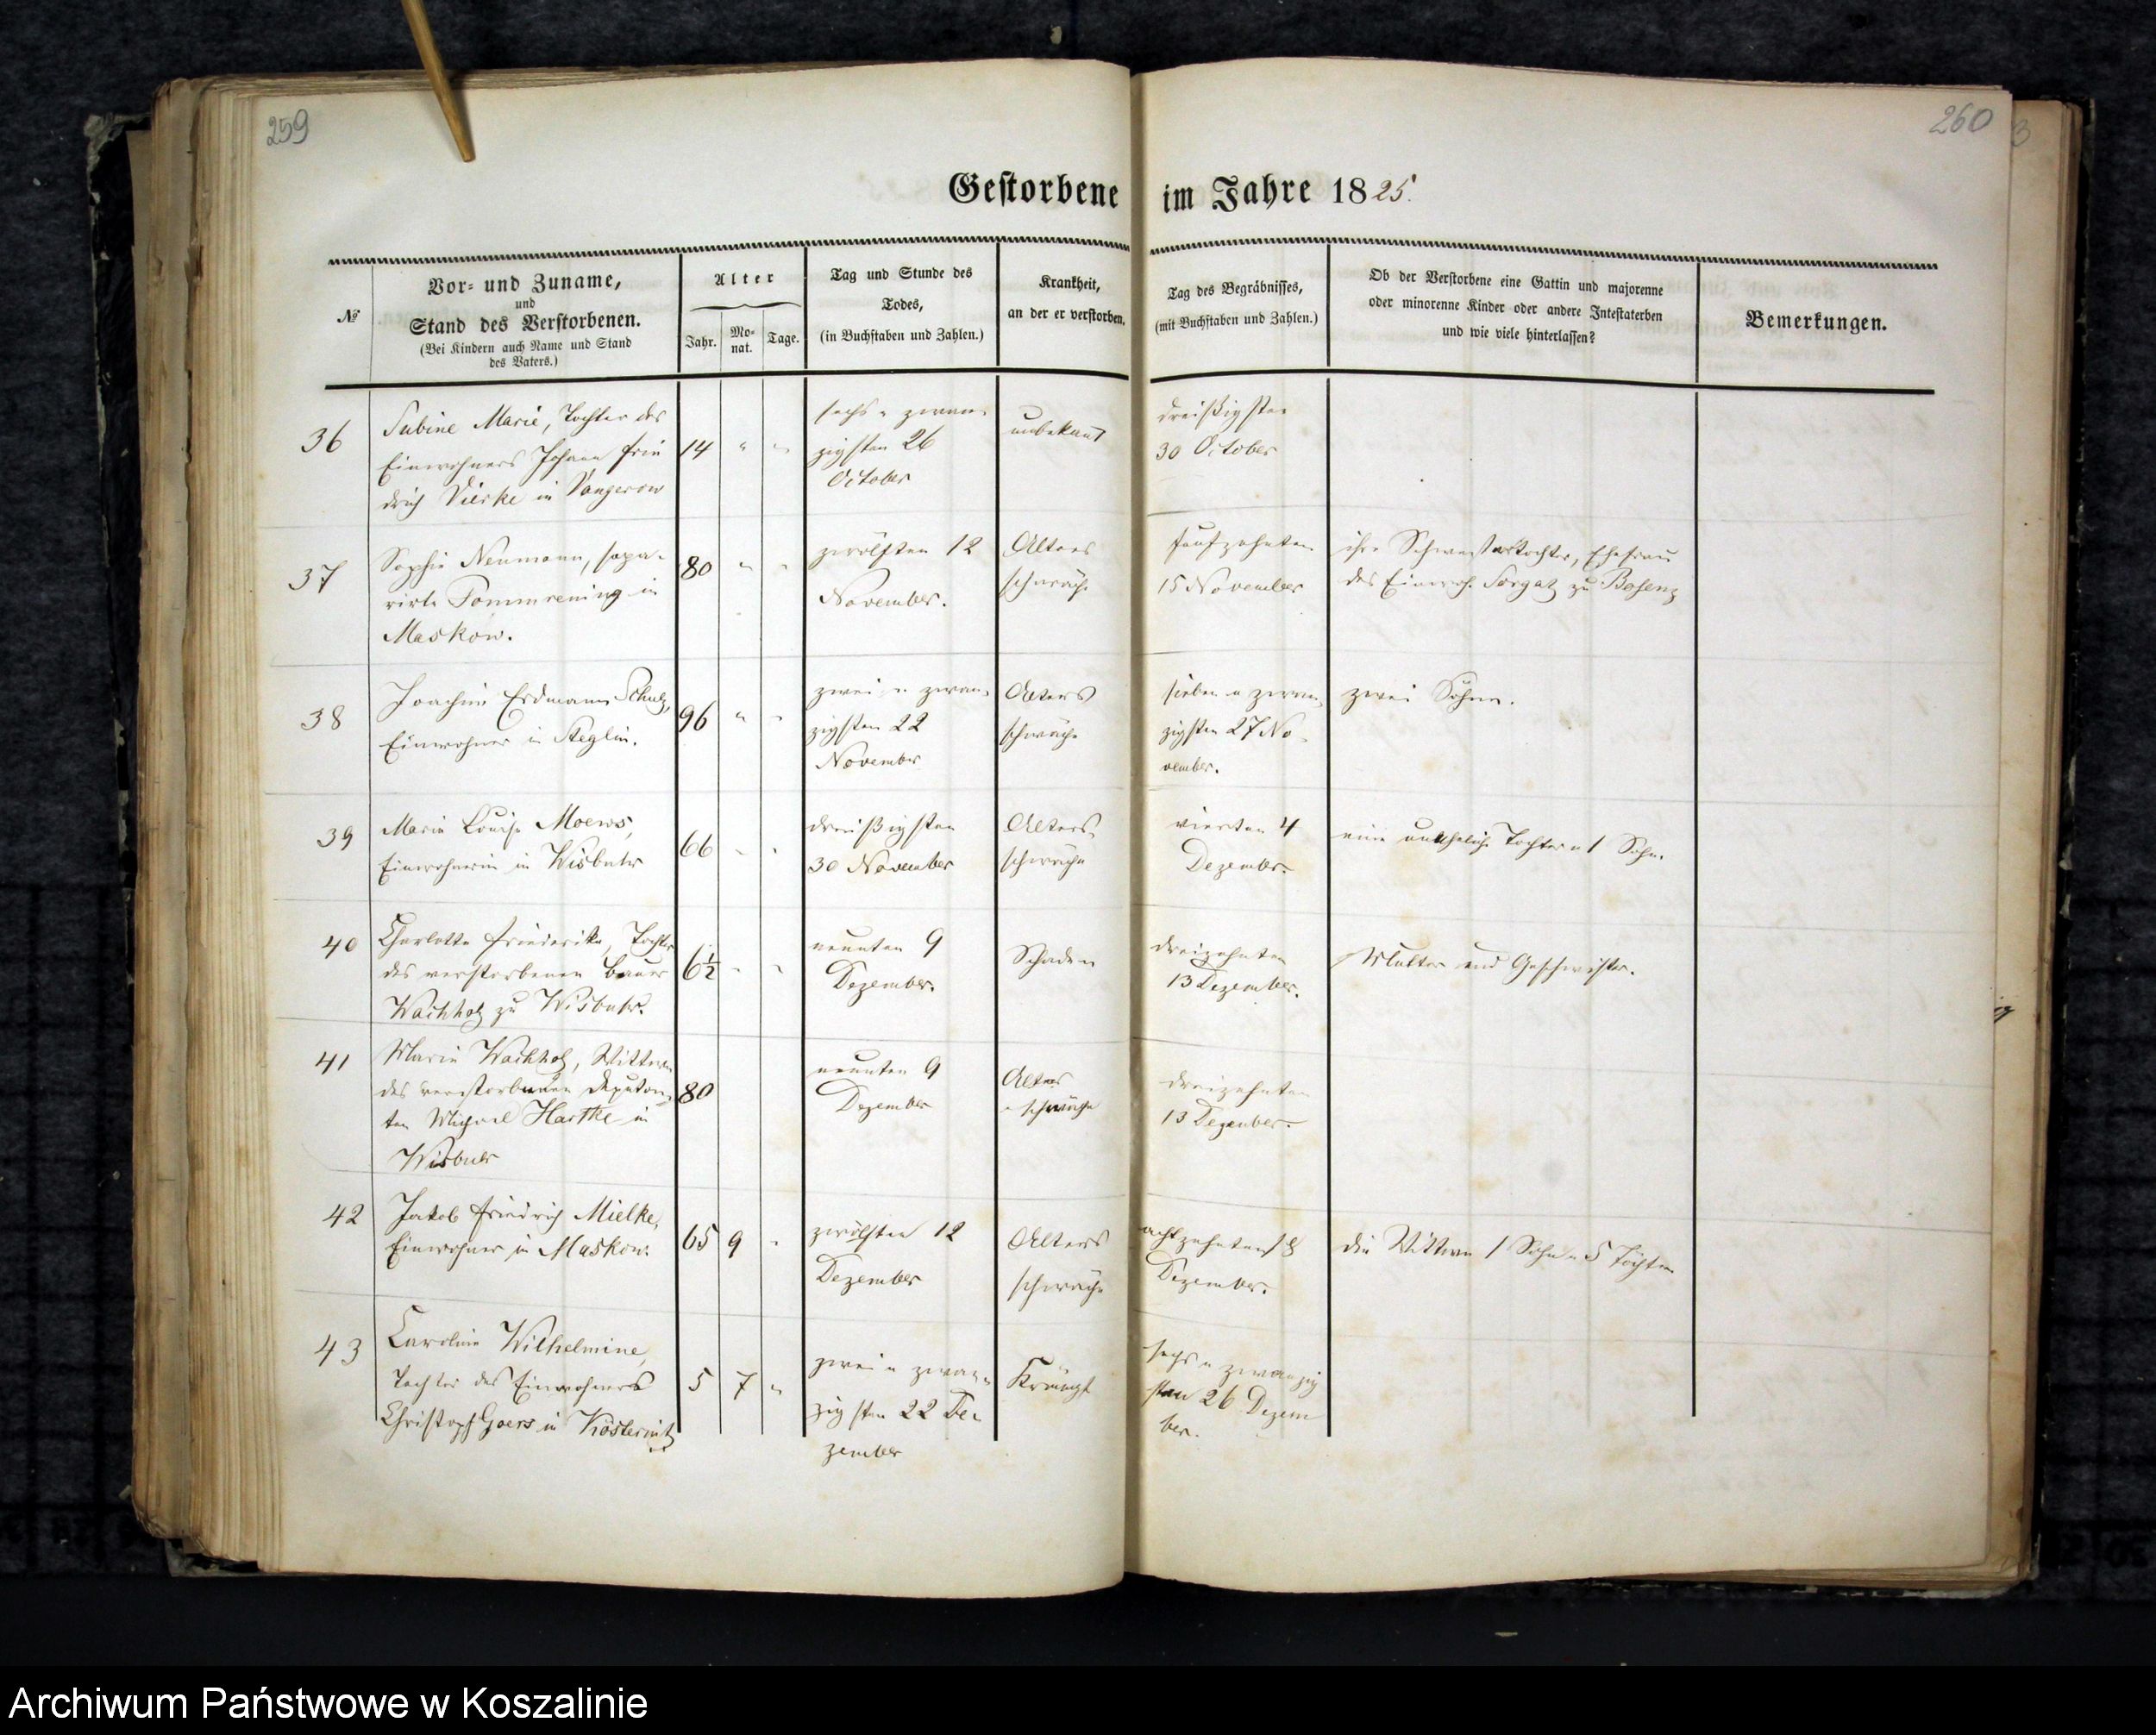 259
260
Gestorbene im Jahre 1825.
№
Vor- und Zuname,
und
Stand des Verstorbenen.
(Bei Kindern auch Name und Stand
des Vaters.)
Alter
Jahr.
Mo-
nat.
Tage.
Tag und Stunde des
Todes,
(in Buchstaben und Zahlen.)
Krankheit,
an der er verstorben.
Tag des Begräbnisses,
(mit Buchstaben und Zahlen.)
Ob der Verstorbene eine Gattin und majorenne
oder minorenne Kinder oder andere Intestaterben
und wie viele hinterlassen?
Bemerkungen.
36
Sabine Marie, Tochter des
Einwohners Johann Frie
drich Vierke in Vangerow
14 " "
sechs u zwan-
zigsten 26
October
unbekannt
dreißigsten
30 October
37
Sophie Neumann, sepa-
rirte Pommrening in
Maskow.
80 " "
zwölften 12
November.
Alters
schwäche
funfzehnten
15 November
ihre Schwestertochter, Ehefrau
des Einwoh. Sorgatz zu
38
Joachim Erdmann Schulz,
Einwohner in Steglin.
96 " "
zwei u zwan-
zigsten 22
November
Alters
schwäche
sieben u zwan-
zigsten 27 No-
vember.
zwei Söhne.
39
Marie Louise Moews,
Einwohnerin in Wisbuhr
66 " "
dreißigsten
30 November
Alters-
schwäche
vierten 4
Dezember
eine uneheliche Tochter u 1 Sohn.
40
Charlotte Friederike, Tochter
des verstorbenen Bauer
Wachholz zu Wisbuhr.
6½ " "
neunten 9
Dezember.
Schaden
dreizehnten
13 Dezember.
Mutter und Geschwister.
41
Marie Wachholz, Wittwe
des verstorbenen Deputan-
ten Michael Hartke in
Wisbuhr
80
neunten 9
Dezember
Alters
schwäche
dreizehnten
13 Dezember.
42
Jakob Friedrich Mielke,
Einwohner in Maskow.
65 9 "
zwölften 12
Dezember
Alters
schwäche
achtzehnten 18
Dezember.
die Wittwe 1 Sohn u 5 Töchter
43
Caroline Wilhelmine,
Tochter des Einwohners
Christoph Goers in Kösternitz
5 7 "
zwei u zwan-
zigsten 22 De-
zember
sechs u zwanzig
sten 26 Dezem
ber.
Archiwum Państwowe w Koszalinie